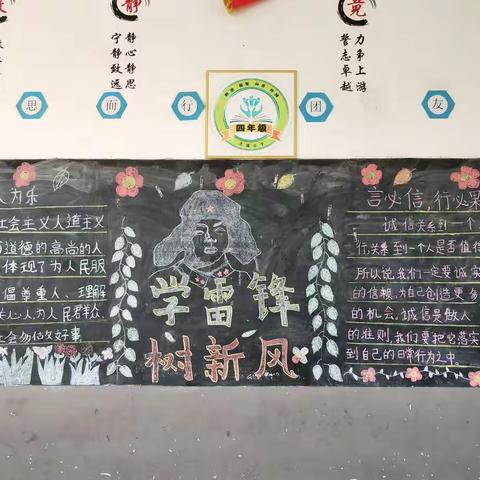 静
竞
宁静致远
静心静思
誓志卓越
力争上游
思
而
行
团
友
四年级
人为乐
社会主义人道主义
道德的高尚的人
体现了为人民服
倡尊重人、理解
关心人为人民群众
社会多做好事
学雷锋
树新风
言必信,行必果
诚信关系到一个
行关系到一个人是否值得
所以说我们一定要诚实
的信赖,为自己创造更多
的机会,诚信是做人
的准则,我们要把它落实
到自己的日常行为之中.